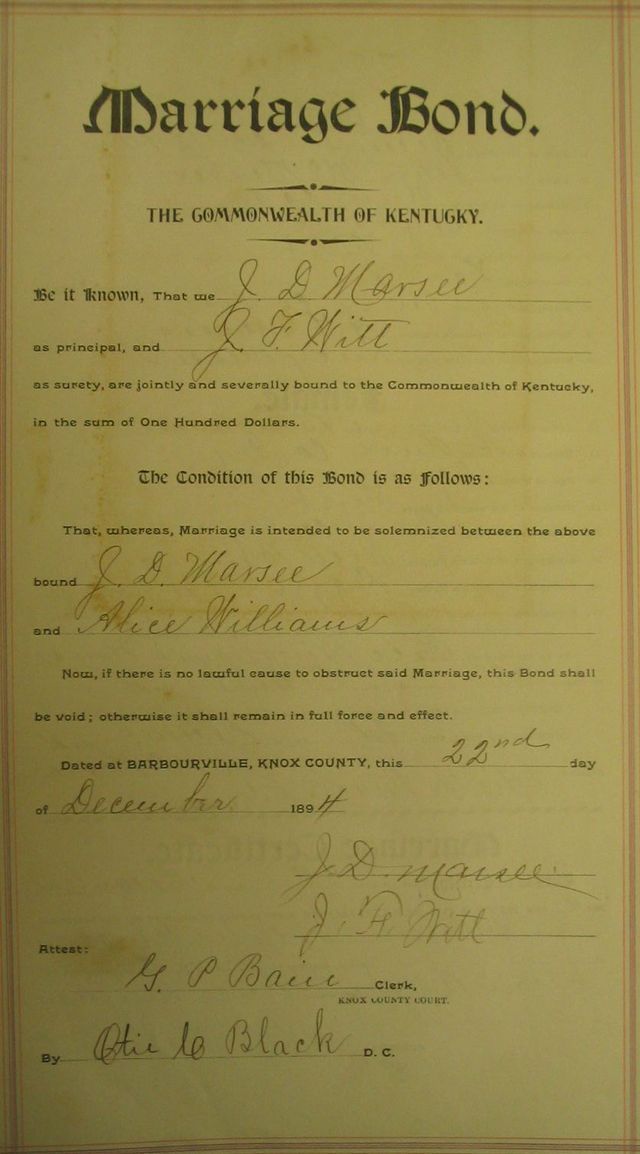 Marriage Bond.
THE COMMONWEALTH OF KENTUCKY.
Be it Known, That we J. D. Marsee
as principal, and J. F. Witt
as surety, are jointly and severally bound to the Commonwealth of Kentucky,
in the sum of One Hundred Dollars.
The Condition of this Bond is as Follows:
That, whereas, Marriage is intended to be solemnized between the above
bound J. D. Marsee
and Alice Williams
Now, if there is no lawful cause to obstruct said Marriage, this Bond shall
be void; otherwise it shall remain in full force and effect.
Dated at BARBOURVILLE, KNOX COUNTY, this 22nd day
of December 1894
J. D. Marsee
J. F. Witt
Attest:
G. P Bain Clerk,
KNOX COUNTY COURT.
By Black D. C.